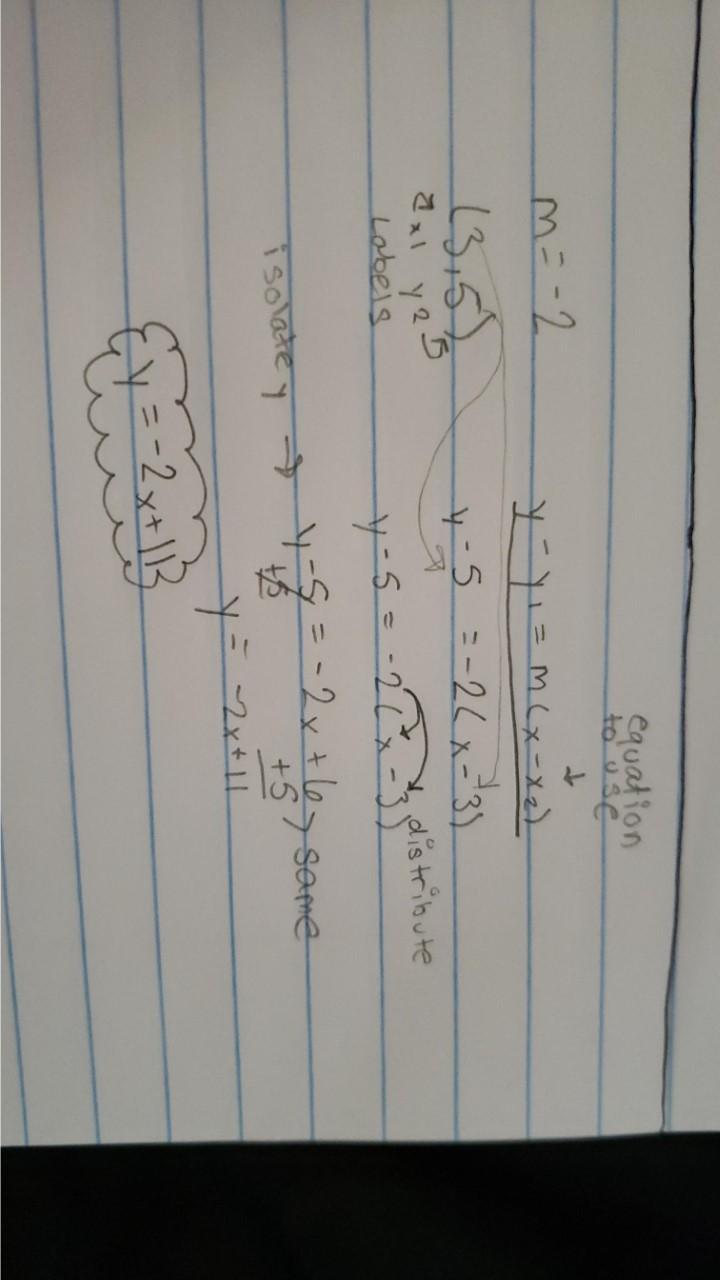 equation
to use
↓
m = -2
y - y₁ = m(x - x₂)
(3,5)
x1 y2 5
Labels
y - 5 = -2(x - 3)
distribute
y - 5 = -2(x - 3)
isolate y → y - 5 = -2x + 6 > same
+5 +5
y = -2x+11
y = -2x+11